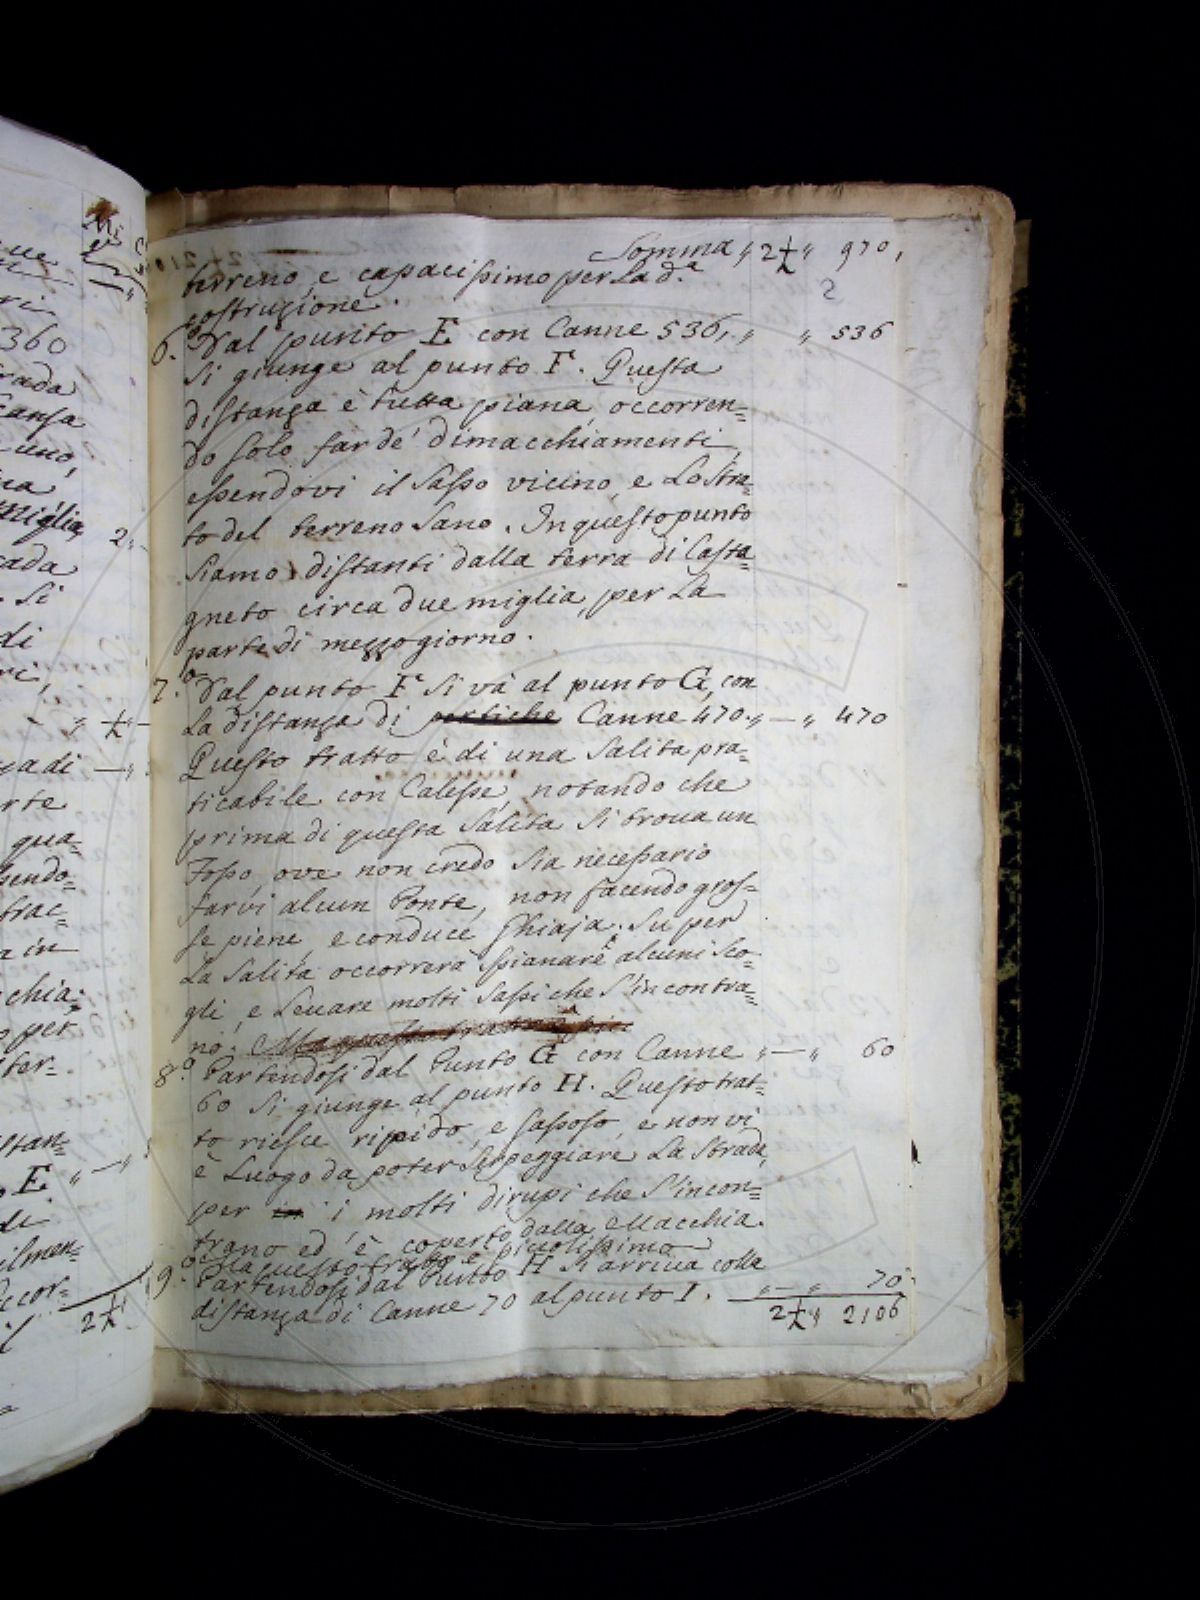 Somma „ 2½ „ 970,
terreno, e capacissimo per La d.ª
costruzione.
2
6.° Dal punto E con Canne 536, „ „ 536
Si giunge al punto F. Questa
distanza è tutta piana, occorren=
do solo far de' dimacchiamenti,
essendovi il Sasso vicino, e Lo Stra=
to del terreno Sano. In questo punto
Siamo distanti dalla terra di Casta=
gneto circa due miglia, per La
parte di mezzogiorno.
7.° Dal punto F Si và al punto G, con
La distanza di pertiche Canne 470. „ — „ 470
Questo tratto è di una Salita pra=
ticabile con Calesse, notando che
prima di questa Salita Si troua un
Fosso, ove non credo Sia necessario
farvi alcun Ponte, non facendo gros=
se piene, e conduce Ghiaja. Su per
La Salita occorrerà Spianare alcuni Sco=
gli, e Levare molti Sassi che S'incontra=
no. Ma questo tratto
8.° Partendosi dal Punto G con Canne „ — „ 60
60 Si giunge al punto H. Questo trat=
to riesce ripido, e Sassoso, e non vi
è Luogo da poter Serpeggiare La Strada,
per in i molti dirupi che S'incon=
trano ed è coperto dalla Macchia.
Ma questo tratto è piccolissimo
9.° Partendosi dal Punto H Si arriva colla
distanza di Canne 70 al punto I. „ — „ 70
2½ „ 2106
Mi
360
rada
uno,
miglia, 2 „
cada
Si
di
„ ½ —
ya di — „
arte
qua=
sendo=
trac=
a in
chia=
per
ter=
stan=
E. „ — „
di
ilmen=
ccor=
2½